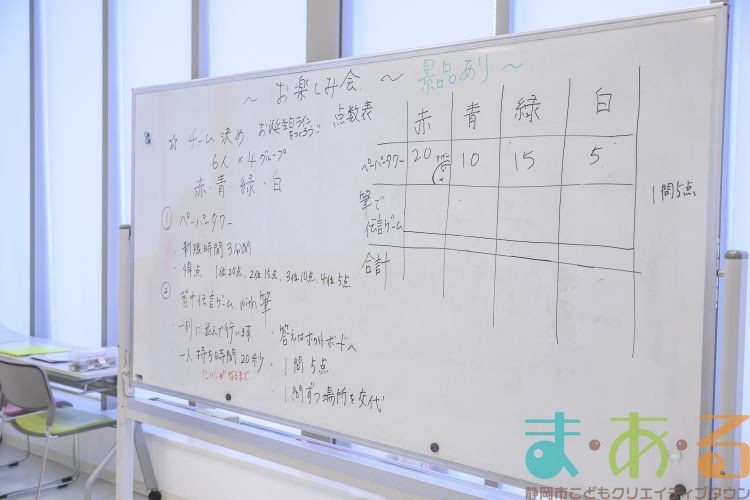 ～ お楽しみ会 ～ 景品あり ～
☆ チーム決め お誕生日ライン
をつくろう!!
6人×4グループ
赤・青・緑・白
① ペーパータワー
・制限時間 3分間
・得点 1位20点、2位15点、3位10点、4位5点
② 背中伝言ゲーム with 筆
・一列に並んで行います
・一人持ち時間 20秒
・答えはホワイトボードへ
・1問 5点
・1問ずつ場所を交代
点数表
赤 青 緑 白
ペーパータワー 20 10 15 5
筆で
伝言ゲーム
合計
1問5点
ま・あ・る
静岡市こどもクリエイティブタウン